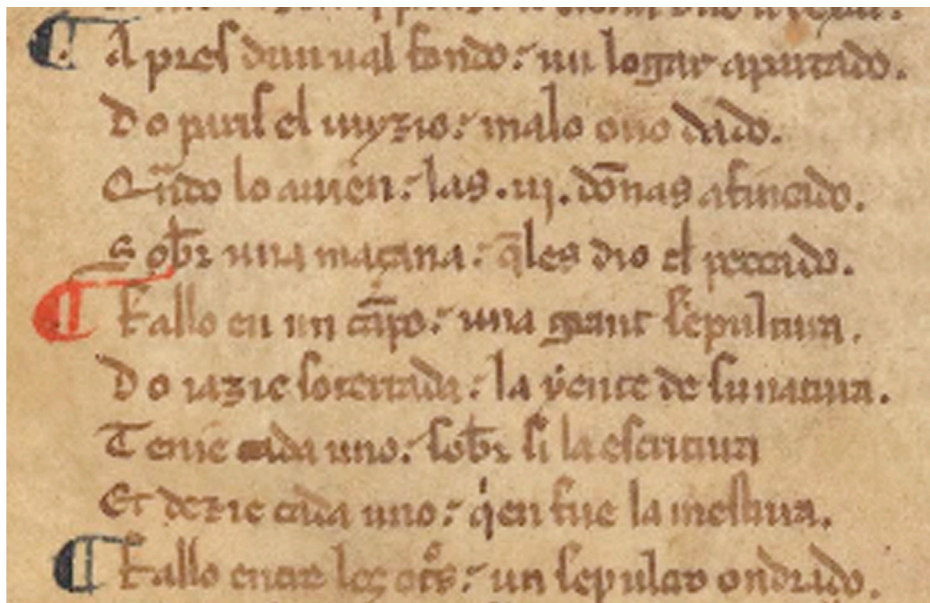 A pres dun ual fondo: un logar apartado.
Do paris el iuyzio: malo ouo dado.
Qñdo lo auien: las .iij. doñas afincado.
Sobr̃ una maçana: q̃ les dio el peccado.
Fallo en un cãpo: una grant sepultura.
Do iazie soterrada: la yente de su natura.
Tenie cada uno: sobr̃ si la escriptura
Et dezie cada uno: qien fue la mestura.
Fallo entre los otr̃s: un sepulcro ondrado.